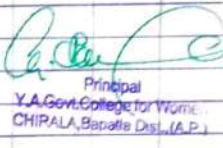 Principal
Y.A.Govt.College for Wome..
CHIRALA, Bapatla Dist., (A.P.)